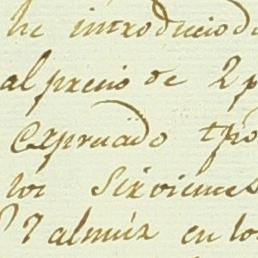 he introducido
al precio de 2 p
Expresado tpo
los Sirvientes
7 almúz en lo